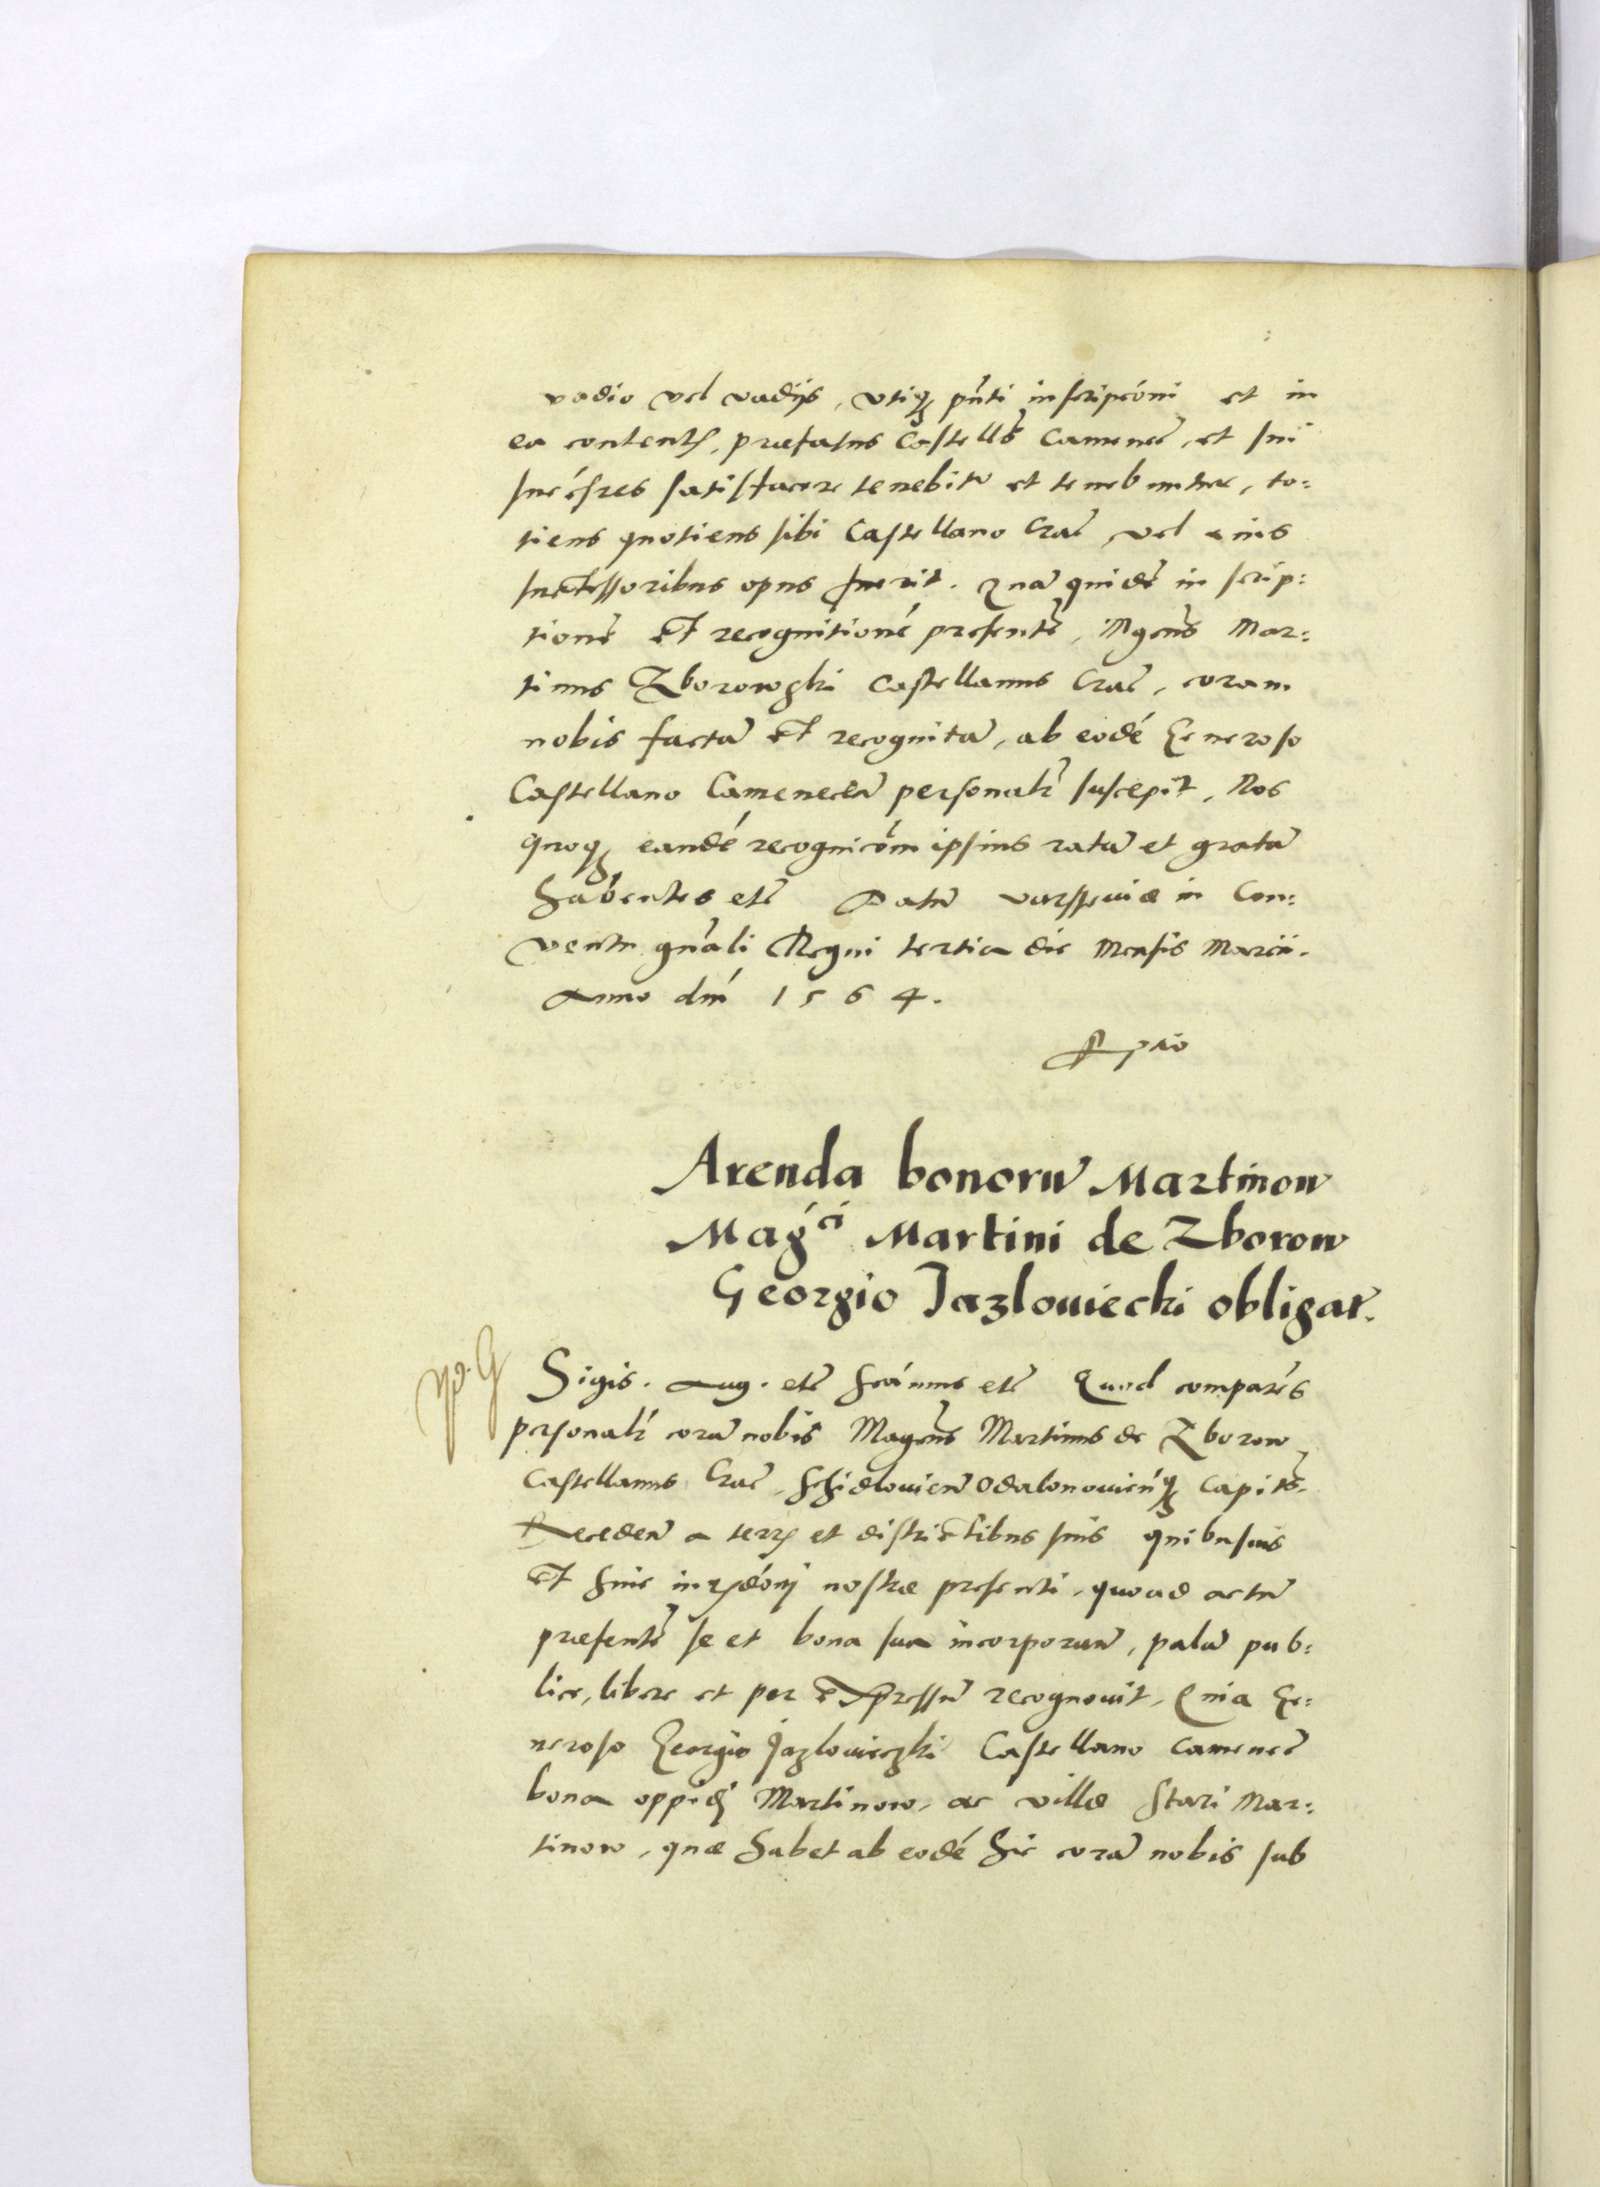 vadio vel vadijs, utiq₃ pnti inscripcóni et in
ea contentę, praefatus Castellũs Camenec̃, et sui
succ̃sres satisfacere tenebitr̃ et tenebuntur, to:
tiens quotiens sibi Castellano Crac̃, vel eius
successoribus opus fuerit. Quã quidẽ in scrip:
tionẽ Et recognitioné presentẽ, Mgcus Mar:
tinus Zborowski Castellanus Crac̃, coram
nobis factã Et recognitã, ab eodé Generoso
Castellano Camenecen̄ personalr̃ suscepit, Nos
quoq₃ eandé recognicõm ipsius ratã et gratã
habentes etc̃ Datũ Varssaviæ in Con:
ventu gnãli Regni tertia die Mensis Marcii.
Anno dnĩ 1564.
Arenda bonorũ Martinow
Magci Martini de Zborow
Georgio Jazlowiecki obligat̃.
Sigis. Aug. etc̃ Sc̃amus etc̃ Quod comparẽs
personalr̃ corã nobis Magcũs Martinus de Zborow
Castellanus Crac̃, Schidlovien̄ Odalonovien̄q₃ Capitẽs.
Receden̄ a terrę et districtibus suis quibusvis
Et huic inrsdc̃oni nostræ presenti, quoad actũ
præsentẽ se et bona sua incorporan̄, palã pub:
lice, libere et per Expressũ recognovit, Quia Ge:
neroso Georgio Jazlovieczki Castellano Camenec̃
bona oppidj Martinow, ac villæ Stari Mar:
tinow, quæ habet ab eodé hic corã nobis sub